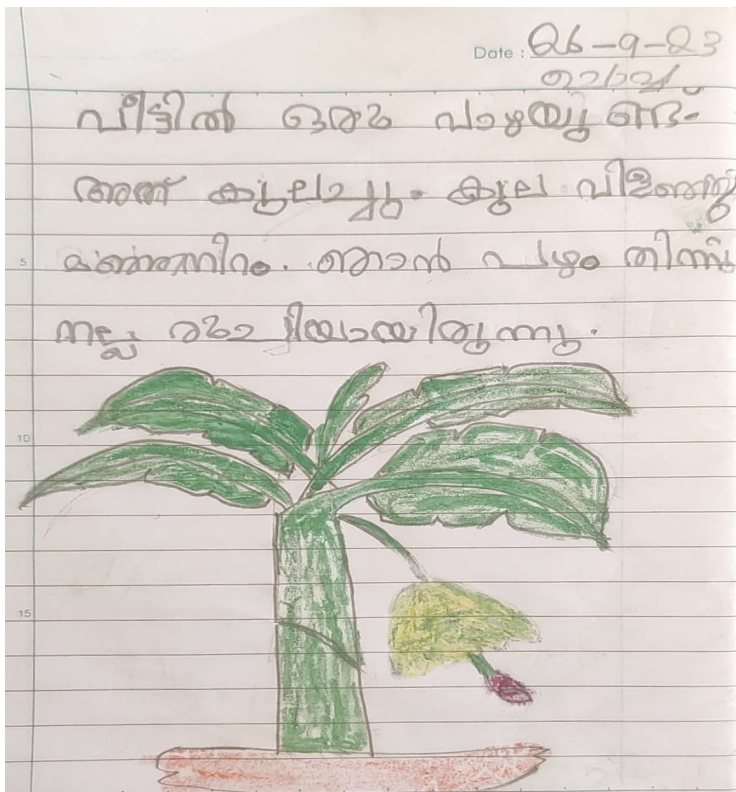 Date : 26-9-23
ചൊവ്വ
വീട്ടിൽ ഒരു വാഴയുണ്ട്.
അത് കുലച്ചു. കുല വിളഞ്ഞു
മഞ്ഞനിറം. ഞാൻ പഴം തിന്നു
നല്ല രുചിയായിരുന്നു.
5
10
15